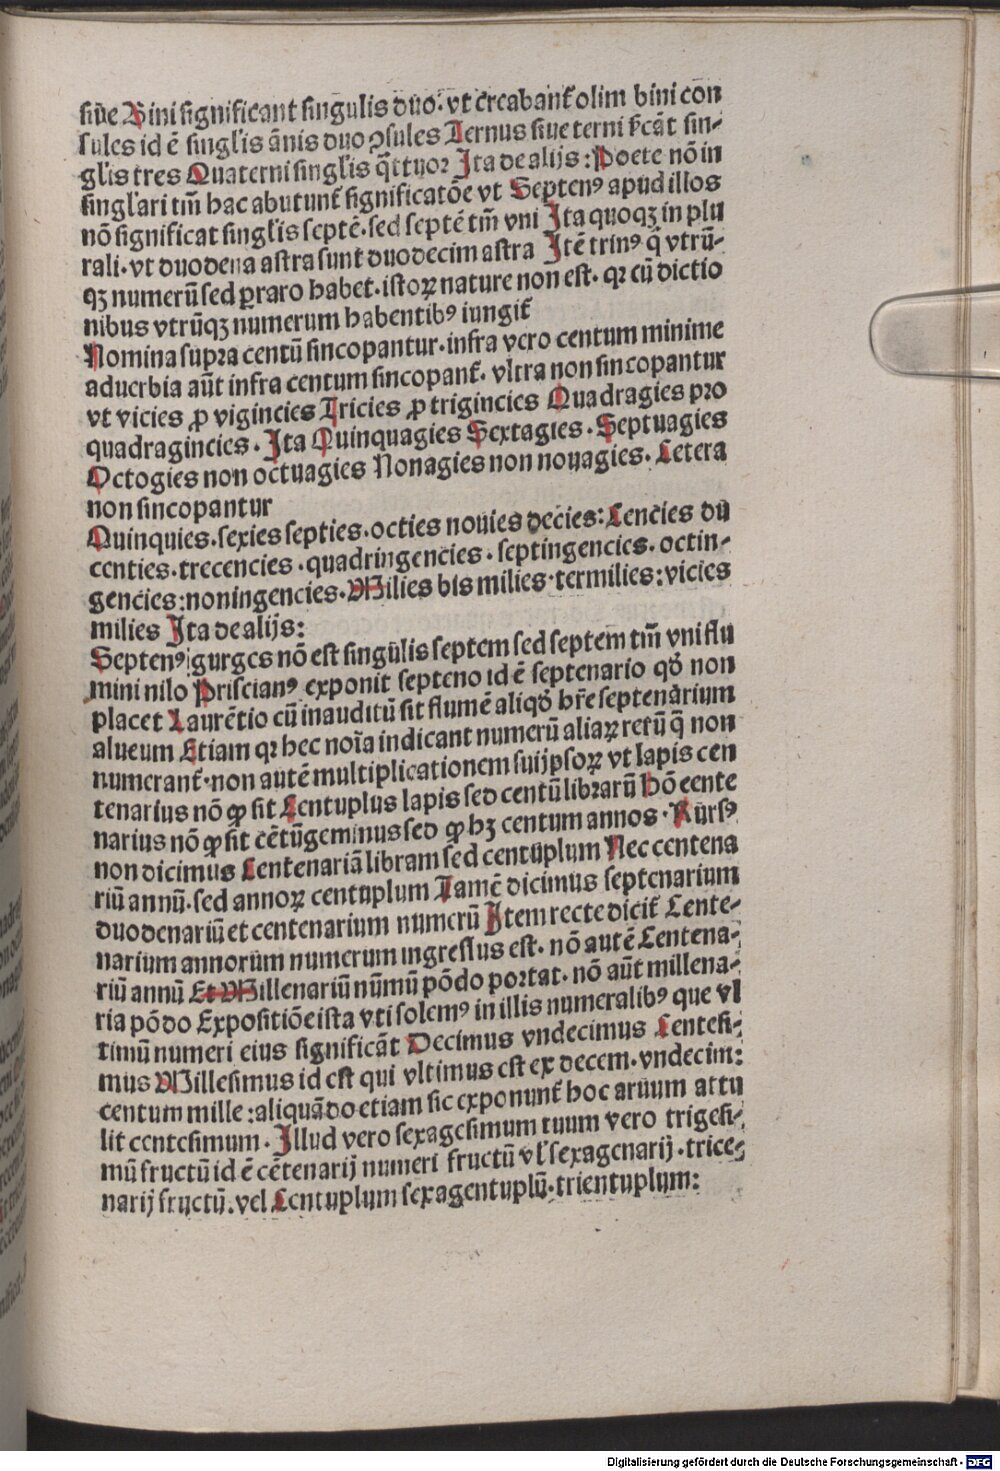 siue Bini significant singulis duo. vt creabant᷑ olim bini con
sules id ē singl'is ānis duo ꝯsules Ternus siue terni st̄cāt sin-
gl'is tres Quaterni singl'is q̄ttuor Ita de alijs: Poete nō in
singl'ari tm̄ hac abutunt᷑ significatōe vt Septenꝰ apud illos
nō significat singl'is septē. sed septē tm̄ vni Ita quoqꝫ in plu
rali. vt duodena astra sunt duodecim astra Itē trinꝰ q̇ vtrū-
qꝫ numerū sed ꝑraro habet. istoꝝ nature non est. qꝛ cū dictio
nibus vtrūqꝫ numerum habentibꝰ iungit᷑
Nomina supra centū sincopantur. infra vero centum minime
aduerbia aūt infra centum sincopant᷑. vltra non sincopantur
vt vicies ꝓ vigincies Tricies ꝓ trigincies Quadragies pro
quadragincies. Ita Quinquagies Sextagies. Septuagies
Octogies non octuagies Nonagies non nouagies. Cetera
non sincopantur
Quinquies. sexies septies. octies nouies decies: Cencies du
centies. trecencies. quadringencies. septingencies. octin-
gencies: noningencies. Milies bis milies. termilies: vicies
milies Ita de alijs:
Septenꝰ gurges nō est singulis septem sed septem tm̄ vni flu
mini nilo Priscianꝰ exponit septeno id ē septenario qḋ non
placet Laurētio cū inauditū sit flumē aliqḋ hr̄e septenarium
alueum Etiam qꝛ hec noīa indicant numerū aliaꝝ rerū q̄ non
numerant᷑. non autē multiplicationem suijpsoꝝ vt lapis cen
tenarius nō ꝙ sit Centuplus lapis sed centū librarū Hō cente
narius nō ꝙ sit cētūgeminus sed ꝙ hꝫ centum annos. Rursꝰ
non dicimus Centenariā libram sed centuplum Nec centena
riū annū. sed annoꝝ centuplum Tamē dicimus septenarium
duodenariū et centenarium numerū Item recte dicit᷑ Cente-
narium annorum numerum ingressus est. nō autē Centena-
riū annū Et Millenariū nūmū pōdo portat. nō aūt millena-
ria pōdo Expositiōe ista vti solemꝰ in illis numeralibꝰ que vl
timū numeri eius significāt Decimus vndecimus Centesi-
mus Millesimus id est qui vltimus est ex decem. vndecim:
centum mille: aliquādo etiam sic exponunt᷑ hoc aruum attu
lit centesimum. Illud vero sexagesimum tuum vero trigesi-
mū fructū id ē cētenarij numeri fructū vl' sexagenarij. trice-
narij fructū. vel Centuplum sexagentuplū. trientuplum:
Digitalisierung gefördert durch die Deutsche Forschungsgemeinschaft - DFG